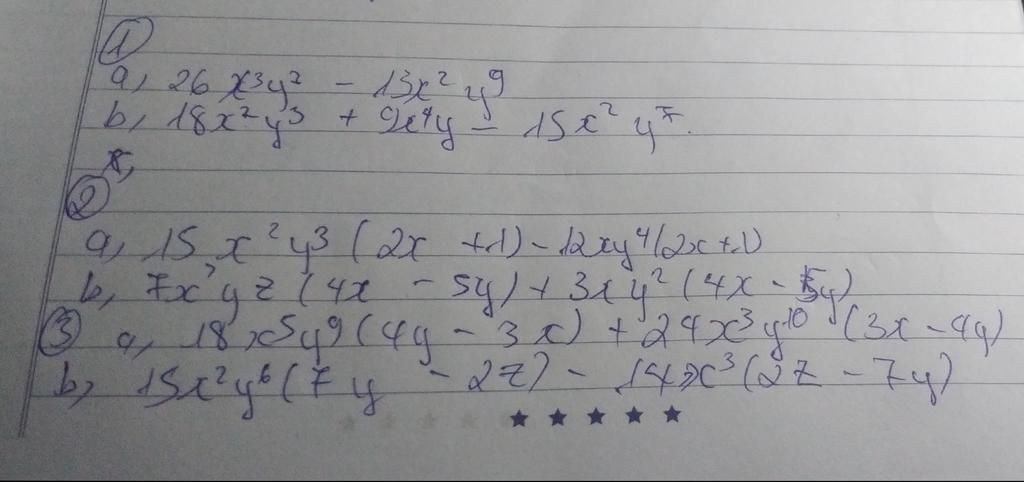 ①
a, 26x³y² - 13x²y⁹
b, 18x²y³ + 9x⁴y - 15x²y⁷.
②
a, 15x²y³(2x + 1) - 12xy⁴(2x + 1)
b, 7x³yz(4x - 5y) + 3xy²(4x - 5y)
③ a, 18x⁵y⁹(4y - 3x) + 24x³y¹⁰(3x - 4y)
b, 15x²y⁶(7y - 2z) - 14x³(2z - 7y)